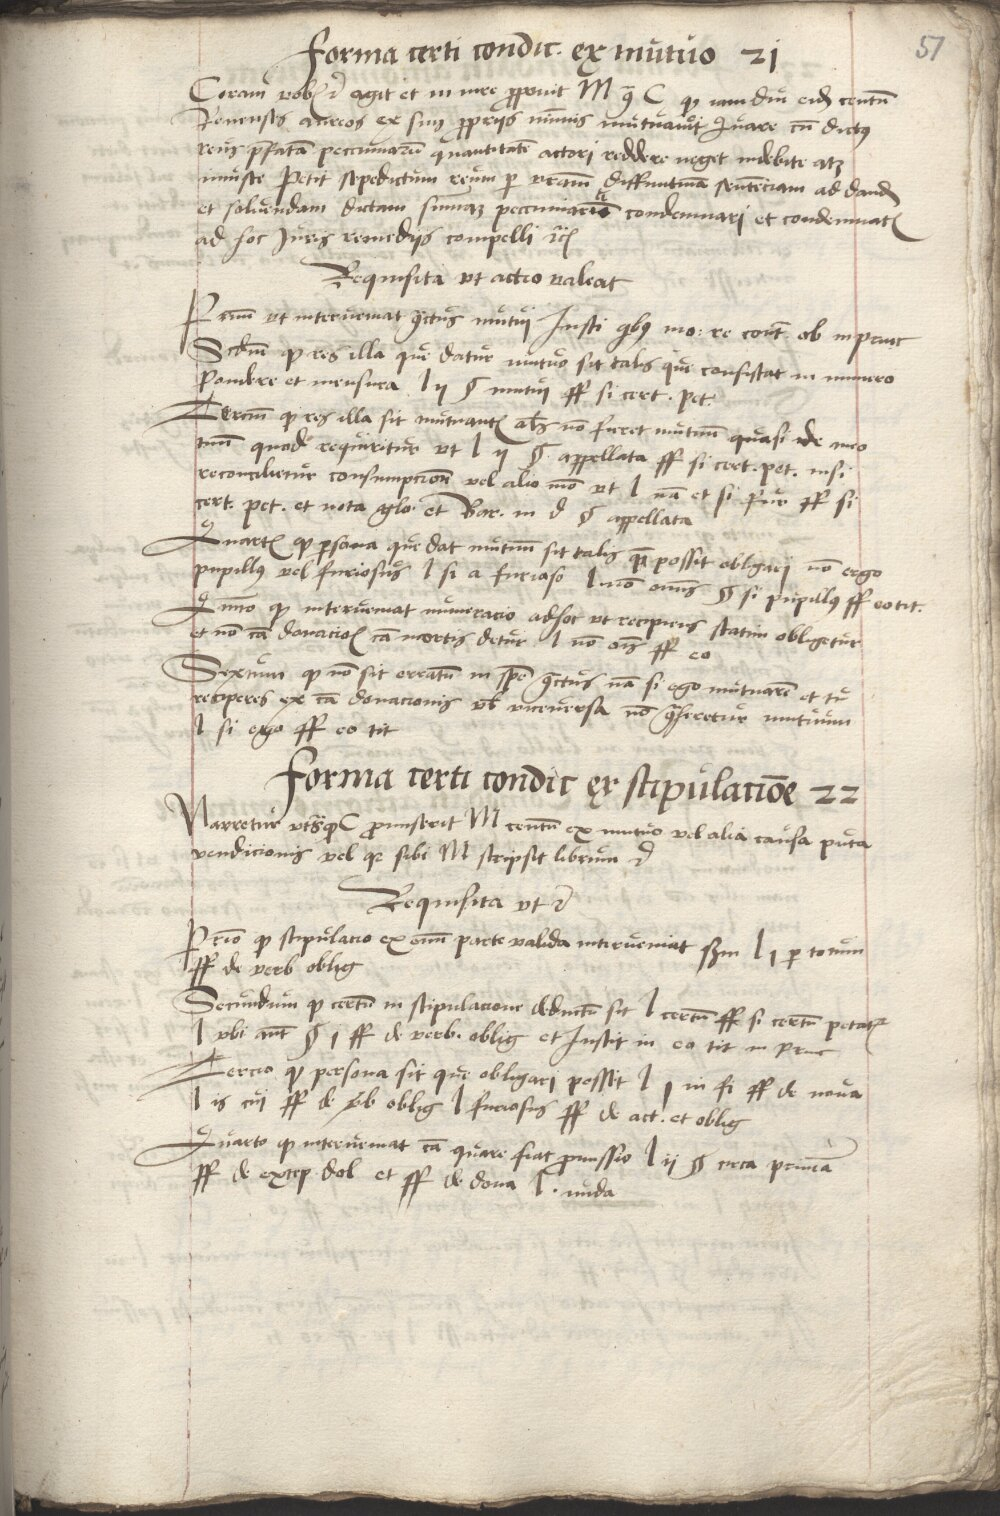 57
Forma certi condic. ex mutuo 21
Coram vob(is) etc agit et in iure proponit M contra C q(uod) iam diu eide(m) centu(m)
Renenses aureos ex suis proprijs nummis mutuavit Quare cu(m) dictus
reus p(re)fata(m) pecuniaru(m) quantitate(m) actori reddere neget indebite atq(ue)
iniuste Petit sepedictum reum per vestram diffinitiva(m) sentenciam ad dand(am)
et solvendam dictam summa(m) pecuniaria(m) condemnari et condemnat(um)
ad hoc Juris remedijs compelli etc
Requisita ut actio valeat
Primu(m) ut interveniat contractus mutui Insti quibus mo: re cont. ob in princ
Secundu(m) q(uod) res illa que datur mutuo sit talis que consistat in numero
Pondere et mensura l ij § mutui ff si cert. pet.
Tercium q(uod) res illa sit mutuant(is) al(ia)s no(n) fieret mutuu(m) quasi de meo
tuu(m) quod requiritur ut l ij § appellata ff si cert. pet. nisi
reconcilietur consumpcione vel alio modo ut l nam et si fur ff si
cert. pet. et nota glo. et Bar. in d § appellata
Quart(um) q(uod) persona que dat mutuu(m) sit talis que possit obligari no(n) ergo
pupillus vel furiosus l si a furioso l no(n) omnis § si pupillus ff eo tit.
Quinto q(uod) interveniat numeracio adhoc ut recipiens statim obligetur
et no(n) ca(usa) donacio(n)is ca(usa) mortis detur l no(n) o(mn)is ff eo
Sextum q(uod) no(n) sit erratu(m) in spe(cie) contractus na(m) si ego mutuare(m) et tu
reciperes ex ca(usa) donacionis vel viceversa no(n) contraheretur mutuum
l si ego ff eo tit
Forma certi condic ex stipulacio(n)e 22
Narretur ut s(upra) q(uod) C promiserit M centu(m) ex mutuo vel alia causa puta
vendicionis vel q(uia) sibi M scripsit librum etc
Requisita ut etc
Primo q(uod) stipulacio ex omni parte valida interveniat s(ecundu)m l j per totum
ff de verb oblig
Secundum q(uod) certu(m) in stipulacione deductu(m) sit l certu(m) ff si certu(m) petat(ur)
l ubi aut § j ff de verb. oblig et Instit in eo tit in princ
Tercio q(uod) persona sit que obligari possit l j in fi ff de nova
l is cui ff de verb oblig l furiosus ff de act. et oblig
Quarto q(uod) interveniat ca(usa) quare fiat promissio l ij § circa prima(m)
ff de excep dol et ff de dona l. nuda